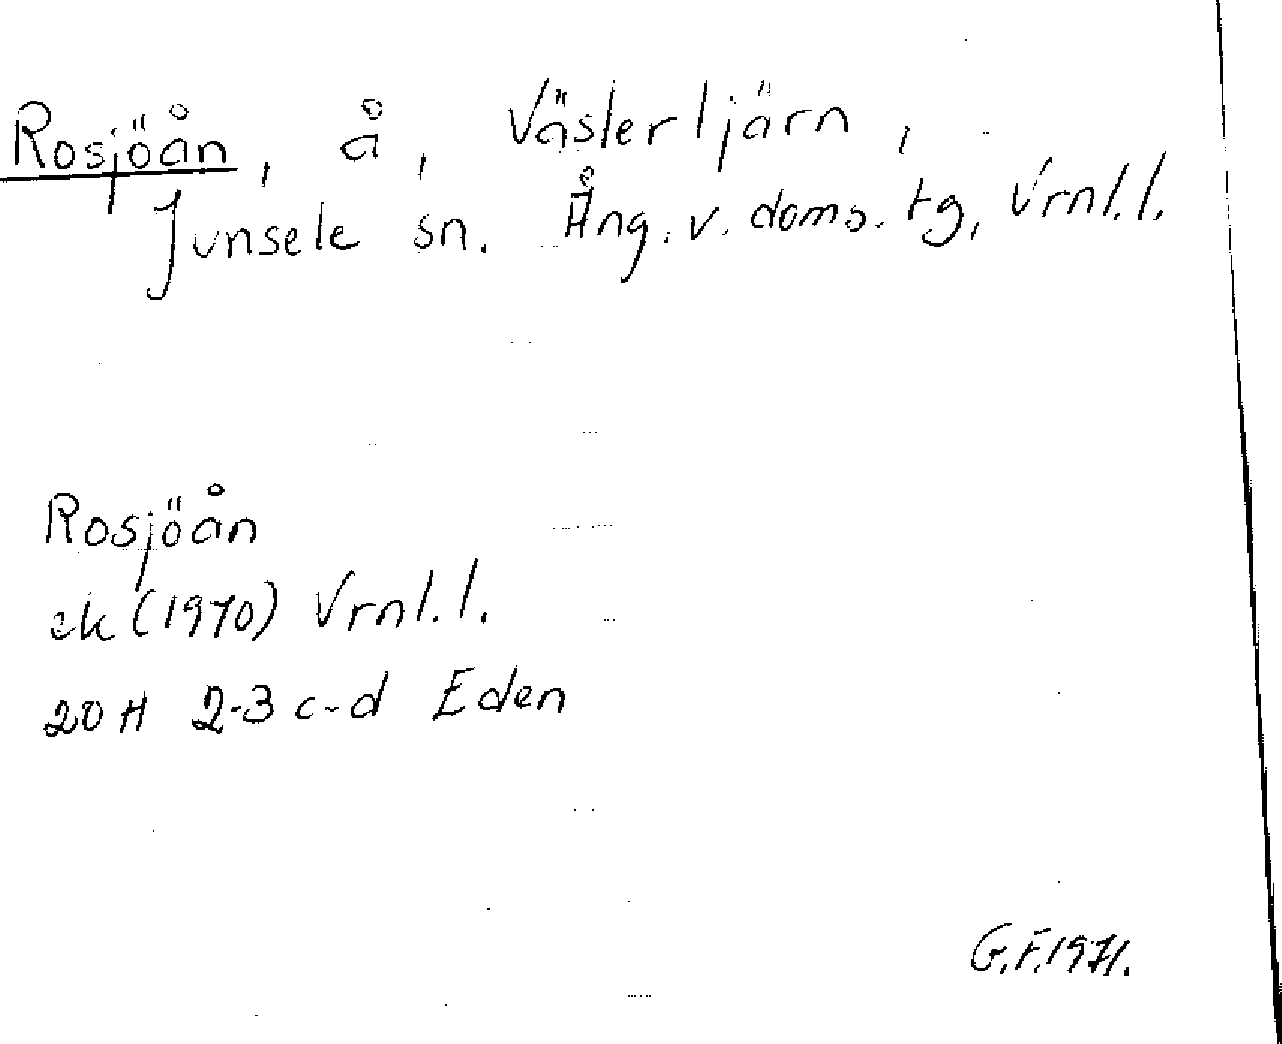 Rosjöån, å, Västertjärn,
Junsele sn. Ång. v. doms. tg, Vrnl. l.
Rosjöån
ek (1970) Vrnl. l.
20 H 2-3 c-d Eden
G.F. 1971.